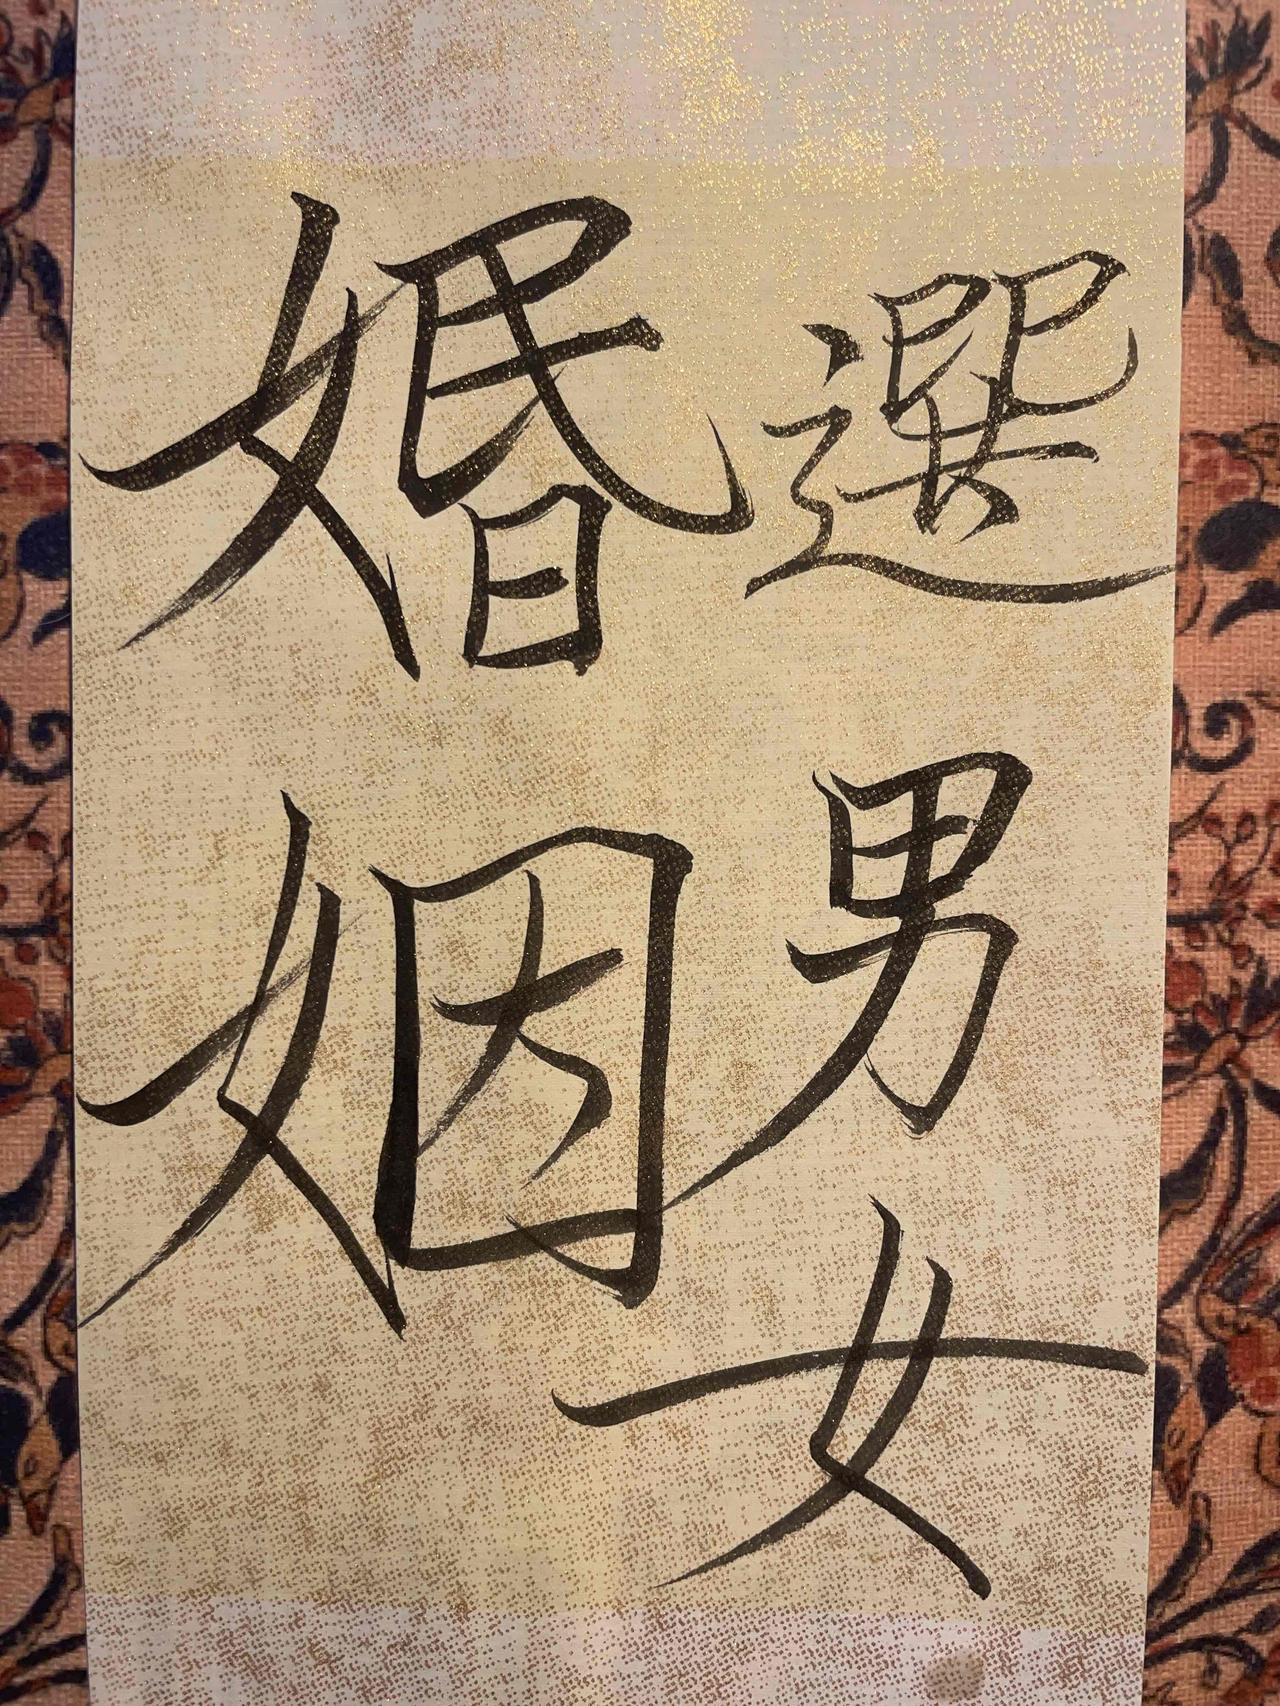 選男女
婚姻